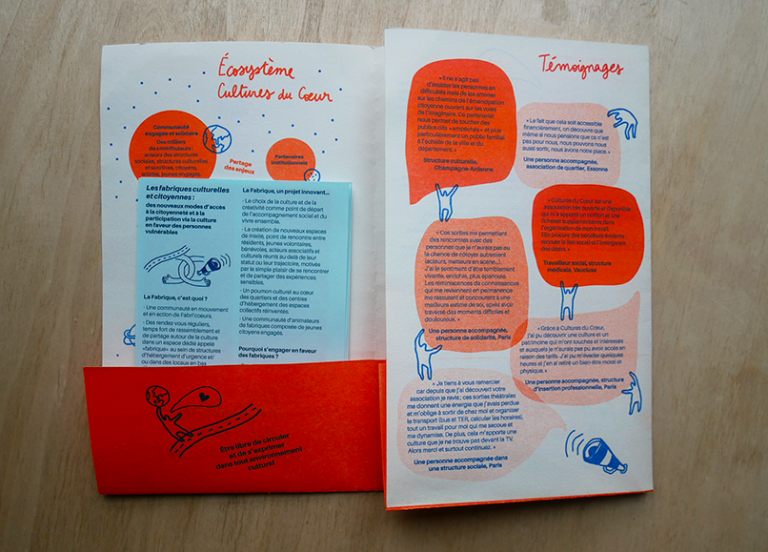 Écosystème
Cultures du Cœur
Communauté
engagée et solidaire
Des milliers
de contributeurs :
relais
sociales, structures culturelles
et sportives, citoyens,
Partage
des enjeux
Partenaires
institutionnels
Les fabriques culturelles
et citoyennes :
des nouveaux modes d'accès
à la citoyenneté et à la
participation via la culture
en faveur des personnes
vulnérables
La Fabrique, c'est quoi ?
- Une communauté en mouvement
et en action de Fabri'coeurs.
- Des rendez-vous réguliers,
temps fort de rassemblement et
de partage autour de la culture
dans un espace dédié appelé
«fabrique» au sein de structures
d'hébergement d'urgence et/
ou dans des locaux en bas
La Fabrique, un projet innovant...
- Le choix de la culture et de la
créativité comme point de départ
de l'accompagnement social et du
vivre ensemble.
- La création de nouveaux espaces
de mixité, point de rencontre entre
résidents, jeunes volontaires,
bénévoles, acteurs associatifs et
culturels réunis au delà de leur
statut ou leur trajectoire, motivés
par le simple plaisir de se rencontrer
et de partager des expériences
sensibles.
- Un poumon culturel au cœur
des quartiers et des centres
d'hébergement des espaces
collectifs réinventés.
- Une communauté d'animateurs
de fabriques composée de jeunes
citoyens engagés.
Pourquoi s'engager en faveur
des fabriques ?
Être libre de circuler
et de s'exprimer
dans tout environnement
culturel
Témoignages
« Il ne s'agit pas
d'assister les personnes en
difficultés mais de les amener
sur les chemins de l'émancipation
citoyenne ouvrant sur les voies
de l'imaginaire. Ce partenariat
nous permet de toucher des
publics dits «empêchés» et plus
particulièrement un public familial
à l'échelle de la ville et du
département. »
Structure culturelle,
Champagne-Ardenne
« Le fait que cela soit accessible
financièrement, on découvre que
même si nous pensions que ce n'est
pas pour nous, nous pouvons nous
aussi sortir, nous avons notre place. »
Une personne accompagnée,
association de quartier, Essonne
« Cultures du Cœur est une
association très ouverte et disponible
qui m'a apporté un confort et une
richesse supplémentaires dans
l'organisation de mon travail.
Travailleur social, structure
médicale, Vaucluse
« Ces sorties me permettent
des rencontres avec des
personnes que je n'aurais pas eu
la chance de côtoyer autrement
(acteurs, metteurs en scène...).
J'ai le sentiment d'être terriblement
vivante, enrichie, plus épanouie.
Les réminiscences de ces connaissances
qui me reviennent en permanence
me rassurent et concourent à une
meilleure estime de soi, après avoir
traversé des moments difficiles et
douloureux. »
Une personne accompagnée,
structure de solidarité, Paris
« Grâce à Cultures du Cœur,
j'ai pu découvrir une culture et un
patrimoine qui m'ont touchés et intéressés
et auxquels je n'aurais pas pu avoir accès en
raison des tarifs. J'ai pu m'évader quelques
heures et j'en ai retiré un bien-être moral et
physique. »
Une personne accompagnée, structure
d'insertion professionnelle, Paris
« Je tiens à vous remercier
car depuis que j'ai découvert votre
association je revis ; ces sorties théâtrales
me donnent une énergie que j'avais perdue
et m'oblige à sortir de chez moi et organiser
le transport (bus et TER, calculer les horaires),
tout un travail pour moi qui me secoue et
me dynamise. De plus, cela m'apporte une
culture que je ne trouve pas devant la TV.
Alors merci et surtout continuez. »
Une personne accompagnée dans
une structure sociale, Paris